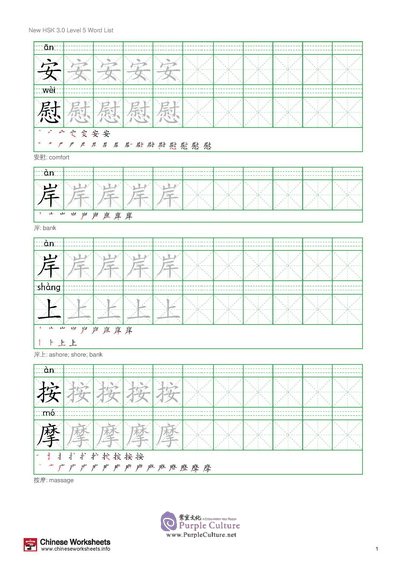 New HSK 3.0 Level 5 Word List
ān
安 安 安 安 安
wèi
慰 慰 慰 慰 慰
安慰: comfort
àn
岸 岸 岸 岸 岸
岸: bank
àn
岸 岸 岸 岸 岸
shàng
上 上 上 上 上
岸上: ashore; shore; bank
àn
按 按 按 按 按
mó
摩 摩 摩 摩 摩
按摩: massage
Purple Culture
www.PurpleCulture.net
Chinese Worksheets
www.chineseworksheets.info
1